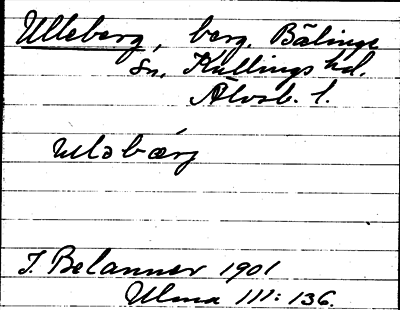 Ulleberg, berg. Bälinge
sn, Kullings hd.
Älvsb. l.
uləbærg
J. Belanner 1901
Ulma III: 136.